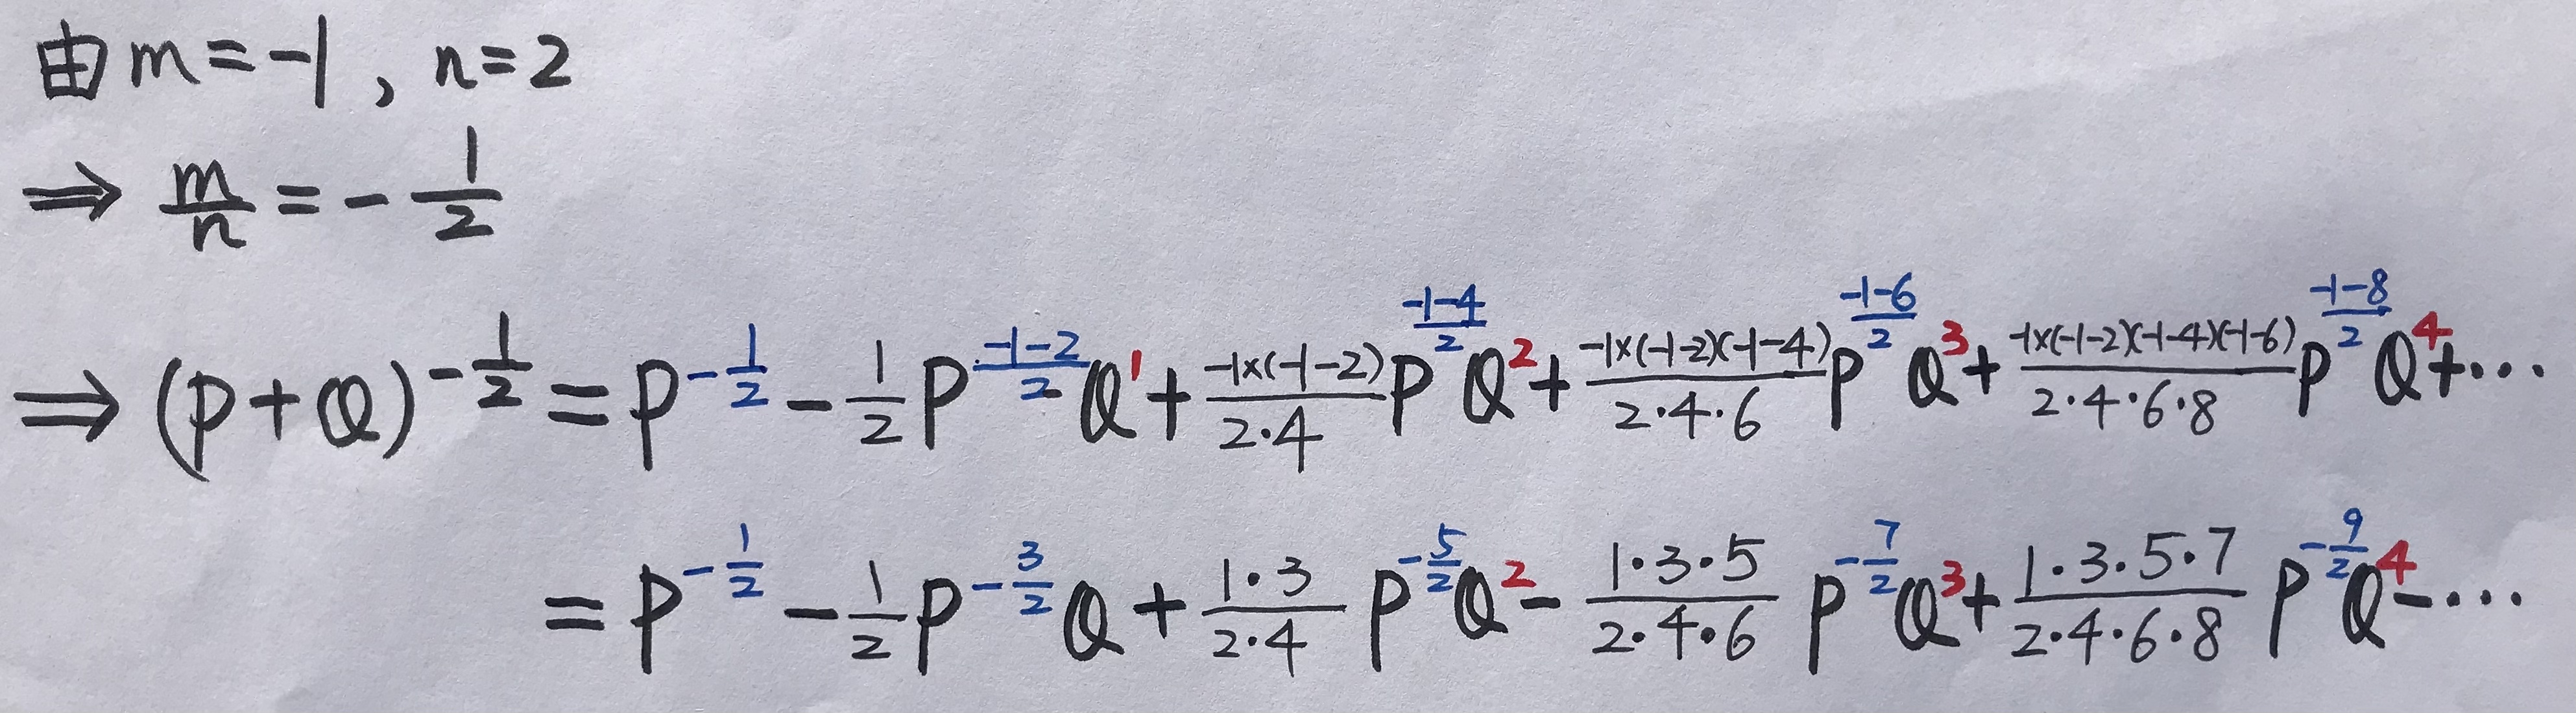 由 m = -1 , n = 2
⇒ \frac{m}{n} = -\frac{1}{2}
⇒ (P+Q)^{-\frac{1}{2}} = P^{-\frac{1}{2}} - \frac{1}{2} P^{\frac{-1-2}{2}} Q^{1} + \frac{-1×(-1-2)}{2·4} P^{\frac{-1-4}{2}} Q^{2} + \frac{-1×(-1-2)(-1-4)}{2·4·6} P^{\frac{-1-6}{2}} Q^{3} + \frac{-1×(-1-2)(-1-4)(-1-6)}{2·4·6·8} P^{\frac{-1-8}{2}} Q^{4} + ···
= P^{-\frac{1}{2}} - \frac{1}{2} P^{-\frac{3}{2}} Q + \frac{1·3}{2·4} P^{-\frac{5}{2}} Q^{2} - \frac{1·3·5}{2·4·6} P^{-\frac{7}{2}} Q^{3} + \frac{1·3·5·7}{2·4·6·8} P^{-\frac{9}{2}} Q^{4} - ···